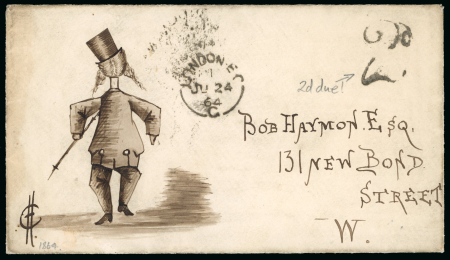 LONDON E.C
JU 24
64
2d due!
BOB HAYMON. ESQ.
131 NEW BOND
STREET
W.
1864